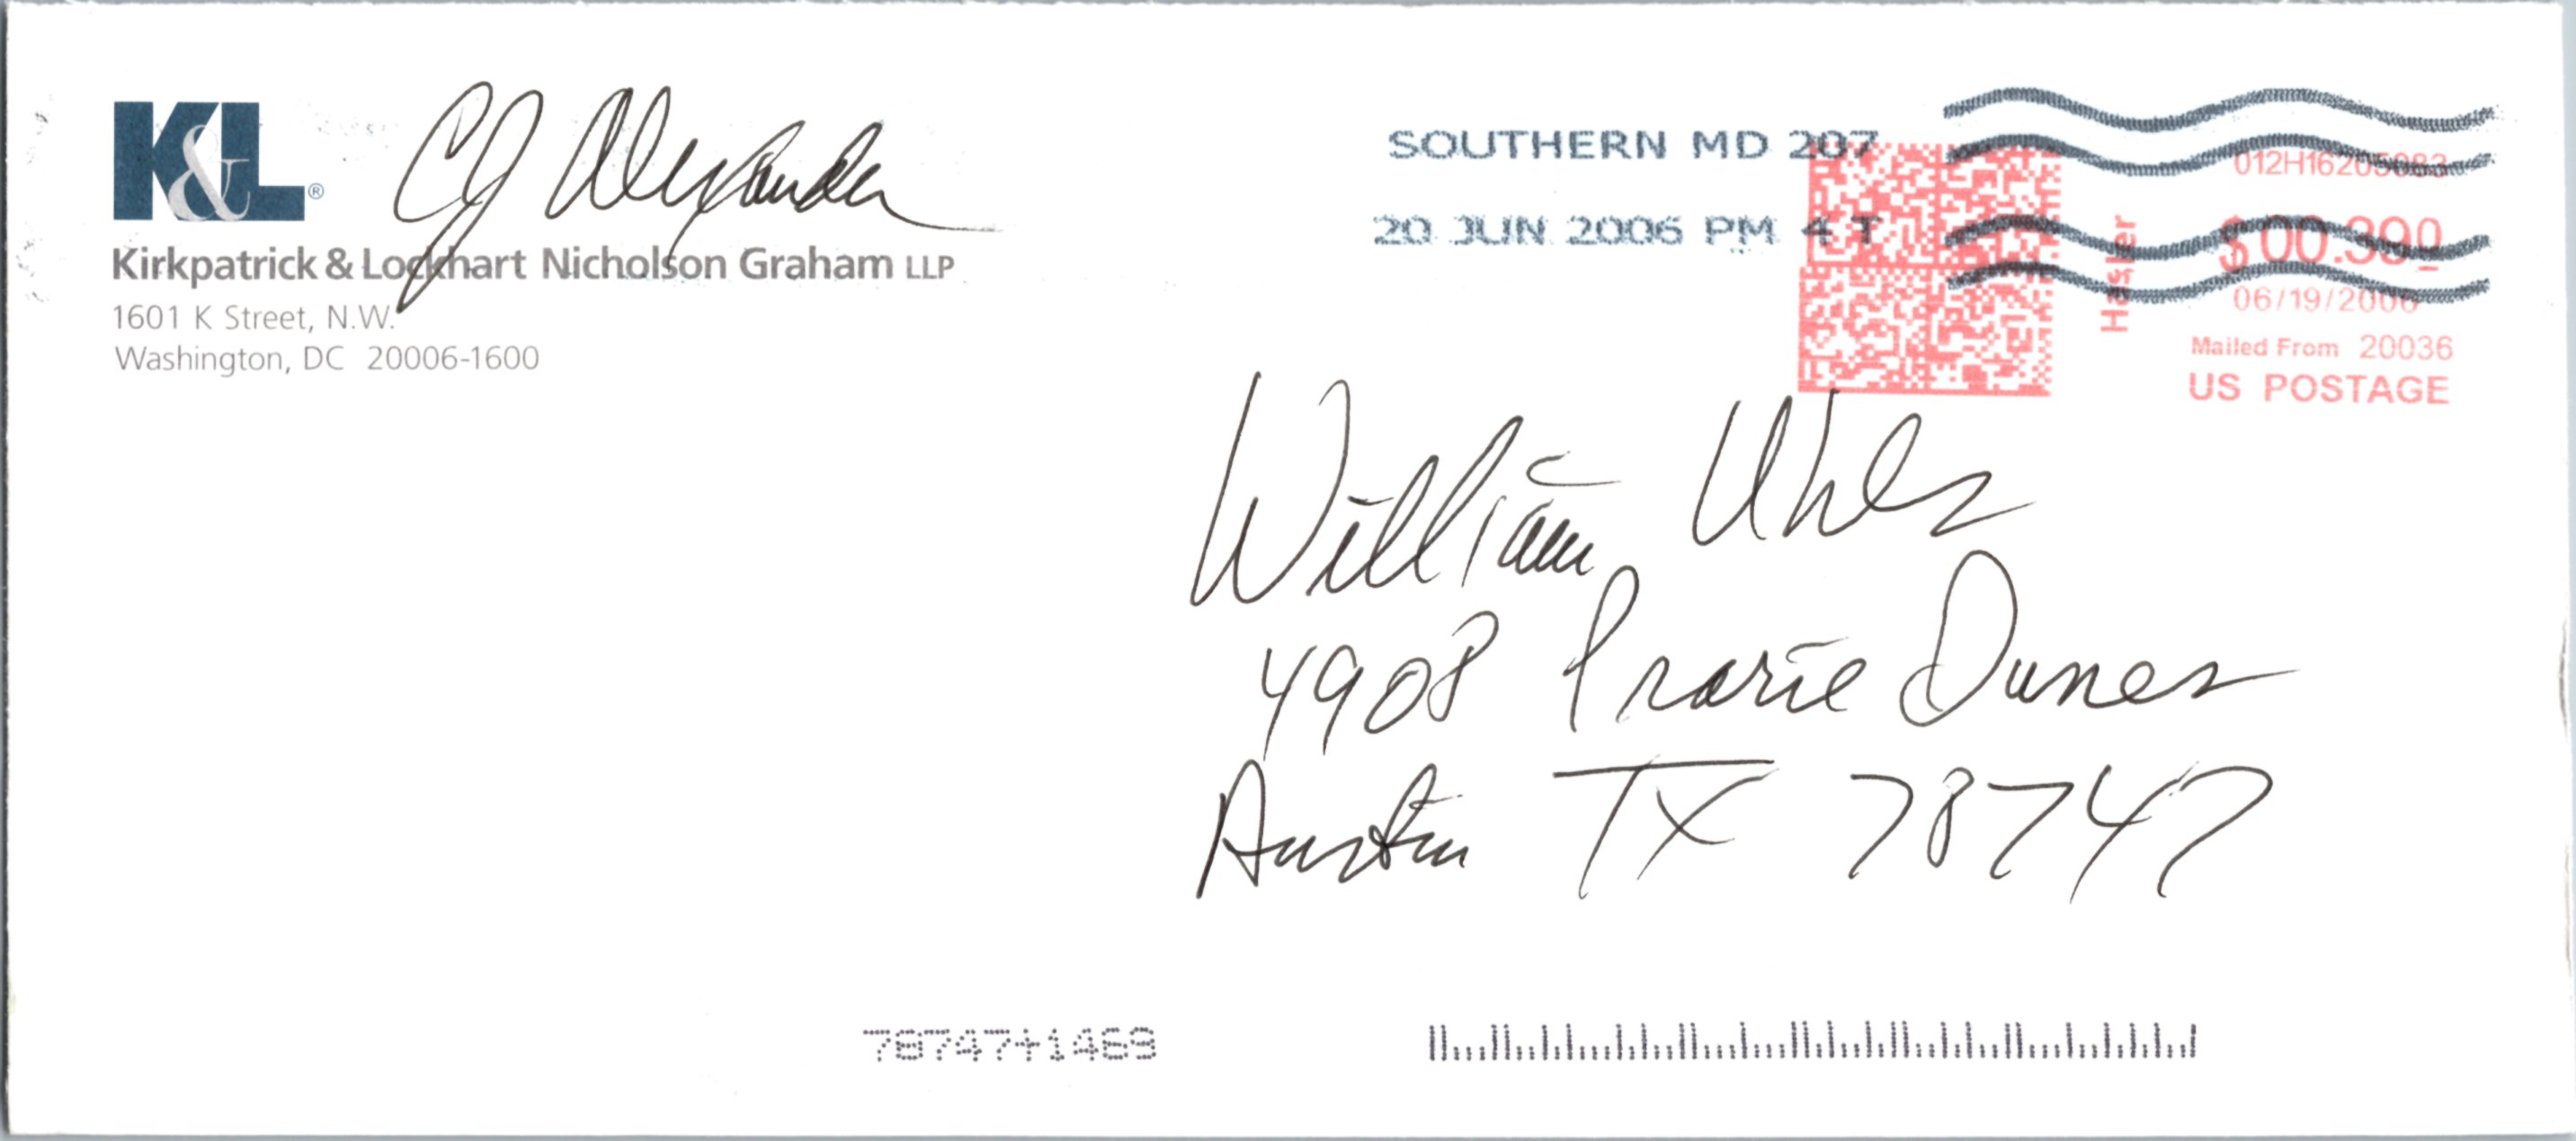 K&L®
CJ Alexander
Kirkpatrick & Lockhart Nicholson Graham LLP
1601 K Street, N.W.
Washington, DC 20006-1600
SOUTHERN MD 207
20 JUN 2006 PM 4 T
012H16205083
$00.390
06/19/2006
Mailed From 20036
US POSTAGE
Hasler
William Uhls
4908 Prarie Dunes
Austin TX 78747
78747+1469